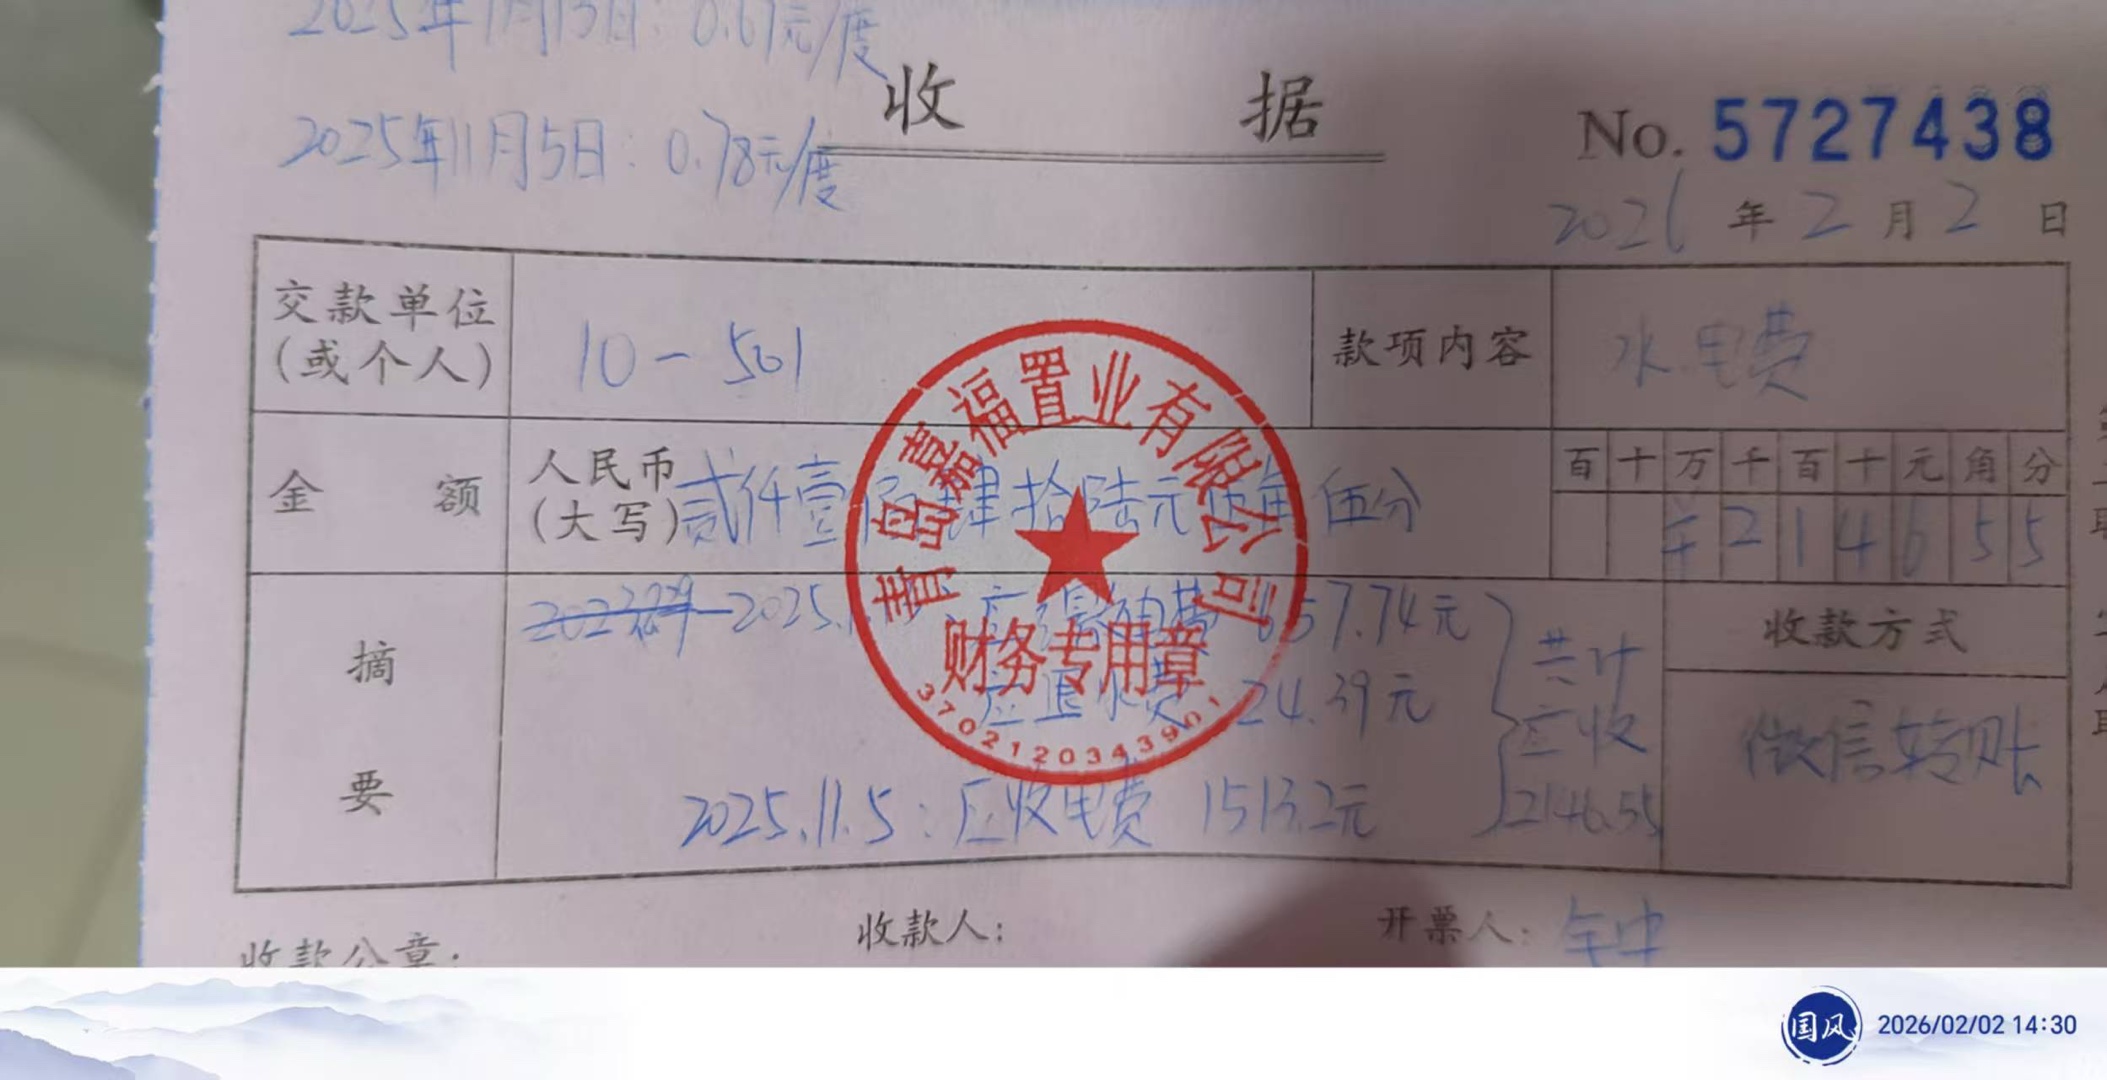 2025年11月13日：0.67元/度
收 据
No. 5727438
2025年11月5日：0.78元/度
2026 年 2 月 2 日
交款单位
(或个人)
10-501
款项内容
水电费
金 额
人民币
(大写)
贰仟壹佰肆拾陆元伍角伍分
百 十 万 千 百 十 元 角 分
羊 2 1 4 6 5 5
摘 要
2025.
657.74元
应退水费 24.39元
2025.11.5：应收电费 1513.2元
共计
应收
2146.55
收款方式
微信转账
青岛嘉福置业有限公司
财务专用章
3702120343901
收款公章：
收款人：
开票人：
国风
2026/02/02 14:30